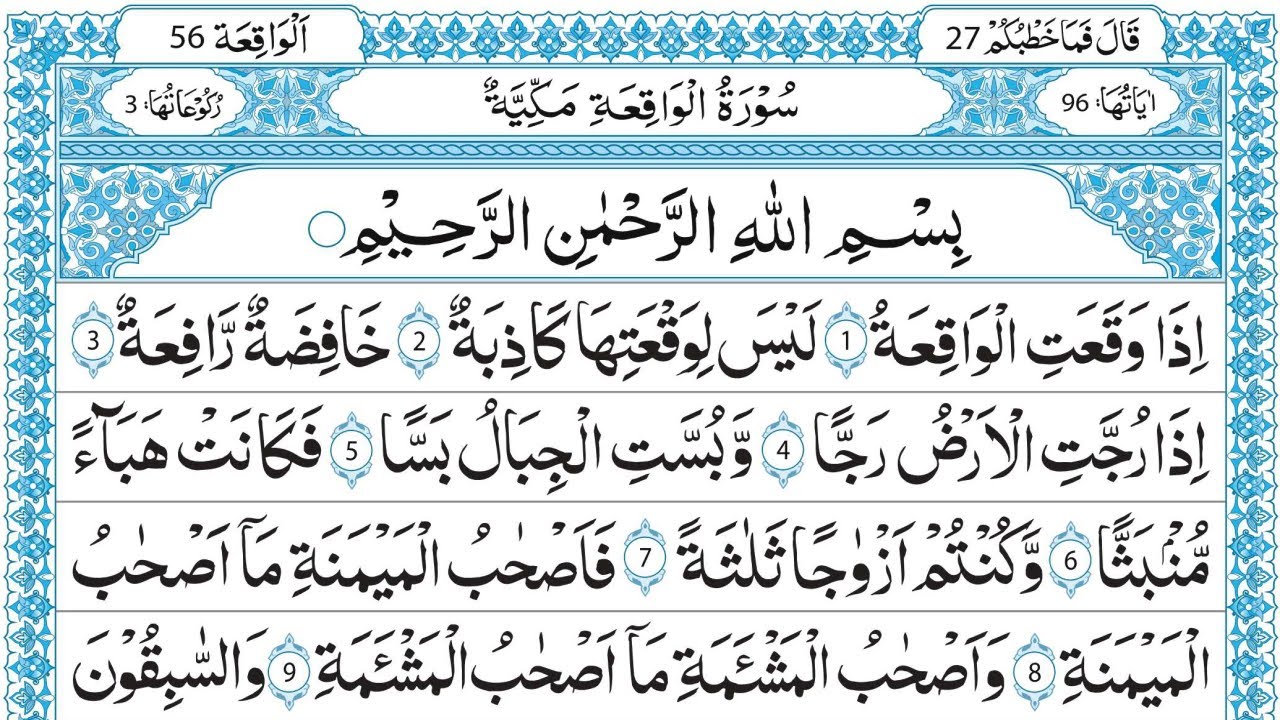 قَالَ فَمَا خَطْبُكُمْ 27
اَلْوَاقِعَة 56
اٰيَاتُهَا: 96
سُوْرَةُ الْوَاقِعَةِ مَكِّيَّةٌ
رُكُوْعَاتُهَا: 3
بِسْمِ اللهِ الرَّحْمٰنِ الرَّحِيْمِ
اِذَا وَقَعَتِ الْوَاقِعَةُ 1 لَيْسَ لِوَقْعَتِهَا كَاذِبَةٌ 2 خَافِضَةٌ رَّافِعَةٌ 3
اِذَا رُجَّتِ الْاَرْضُ رَجًّا 4 وَّبُسَّتِ الْجِبَالُ بَسًّا 5 فَكَانَتْ هَبَآءً
مُّنْۢبَثًّا 6 وَّكُنْتُمْ اَزْوَاجًا ثَلٰثَةً 7 فَاَصْحٰبُ الْمَيْمَنَةِ مَآ اَصْحٰبُ
الْمَيْمَنَةِ 8 وَاَصْحٰبُ الْمَشْـَٔمَةِ مَآ اَصْحٰبُ الْمَشْـَٔمَةِ 9 وَالسّٰبِقُوْنَ